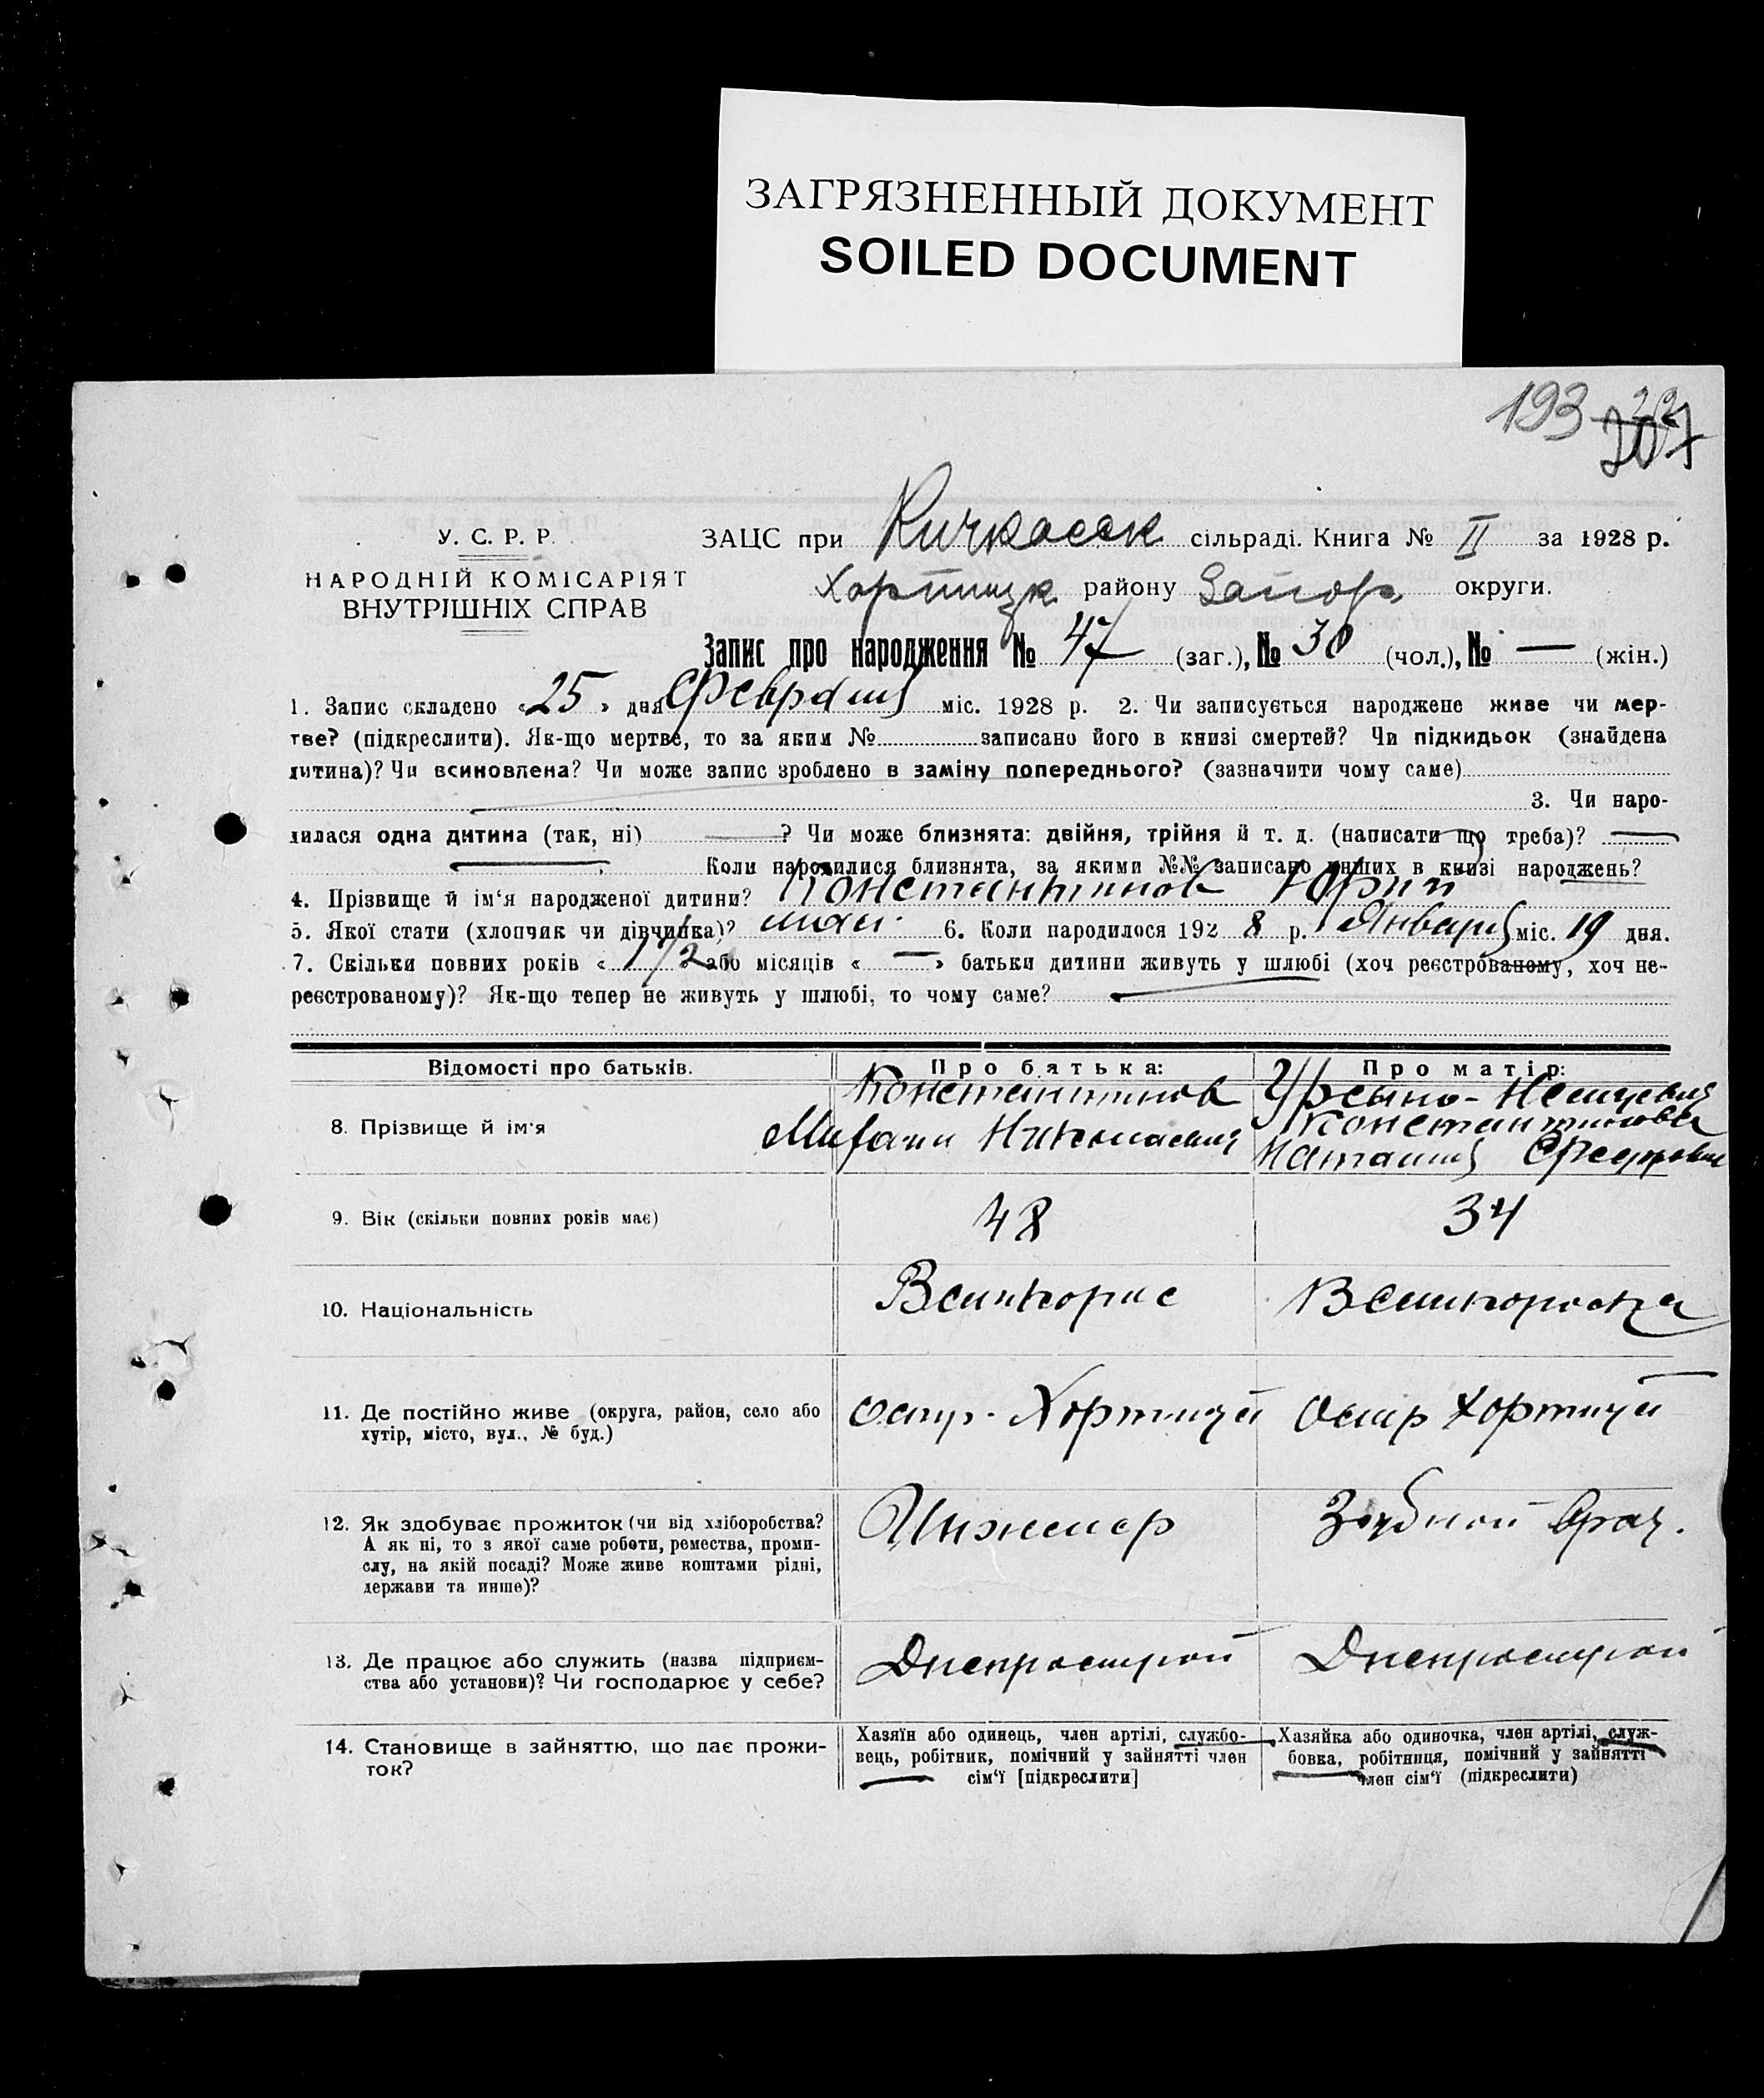 ЗАГРЯЗНЕННЫЙ ДОКУМЕНТ
SOILED DOCUMENT
193
207
У. С. Р. Р.
НАРОДНІЙ КОМІСАРІЯТ
ВНУТРІШНІХ СПРАВ
ЗАЦС при Кичкасск сільраді. Книга № II за 1928 р.
Хортицк району Запор. округи.
Запис про народження № 47 (заг.), № 30 (чол.), № — (жін.)
1. Запис складено « 25 » дня Февраля міс. 1928 р. 2. Чи записується народжене живе чи мер-
тве? (підкреслити). Як-що мертве, то за яким № записано його в книзі смертей? Чи підкидьок (знайдена
дитина)? Чи всиновлена? Чи може запис зроблено в заміну попереднього? (зазначити чому саме)
3. Чи наро-
дилася одна дитина (так, ні) ? Чи може близнята: двійня, трійня й т. д. (написати що треба)?
Коли народилися близнята, за якими №№ записано инших в книзі народжень?
4. Прізвище й ім‘я народженої дитини? Константинов Юрий
5. Якої статі (хлопчик чи дівчинка)? 6. Коли народилося 192 8 р. Января міс. 19 дня.
7. Скільки повних років « 1 1/2 » або місяців « — » батьки дитини живуть у шлюбі (хоч реєстрованому, хоч не-
реєстрованому)? Як-що тепер не живуть у шлюбі, то чому саме?
Відомості про батьків.
Про батька:
Про матір:
8. Прізвище й ім‘я
Константинов
Николаевич
Урсыно-Немцевич
Константинова
Наталия
9. Вік (скільки повних років має)
48
34
10. Національність
Великорус
Великороска
11. Де постійно живе (округа, район, село або
хутір, місто, вул., № буд.)
остр. Хортица
Остр Хортица
12. Як здобуває прожиток (чи від хліборобства?
А як ні, то з якої саме роботи, ремества, проми-
слу, на якій посаді? Може живе коштами рідні,
держави та инше)?
Инженер
Зубной врач.
13. Де працює або служить (назва підприєм-
ства або установи)? Чи господарює у себе?
Днепрострой
Днепрострой
14. Становище в зайняттю, що дає прожи-
ток?
Хазяїн або одинець, член артілі, службо-
вець, робітник, помічний у зайнятті член
сім‘ї [підкреслити]
Хазяйка або одиночка, член артілі, служ-
бовка, робітниця, помічний у зайнятті
член сім‘ї (підкреслити)